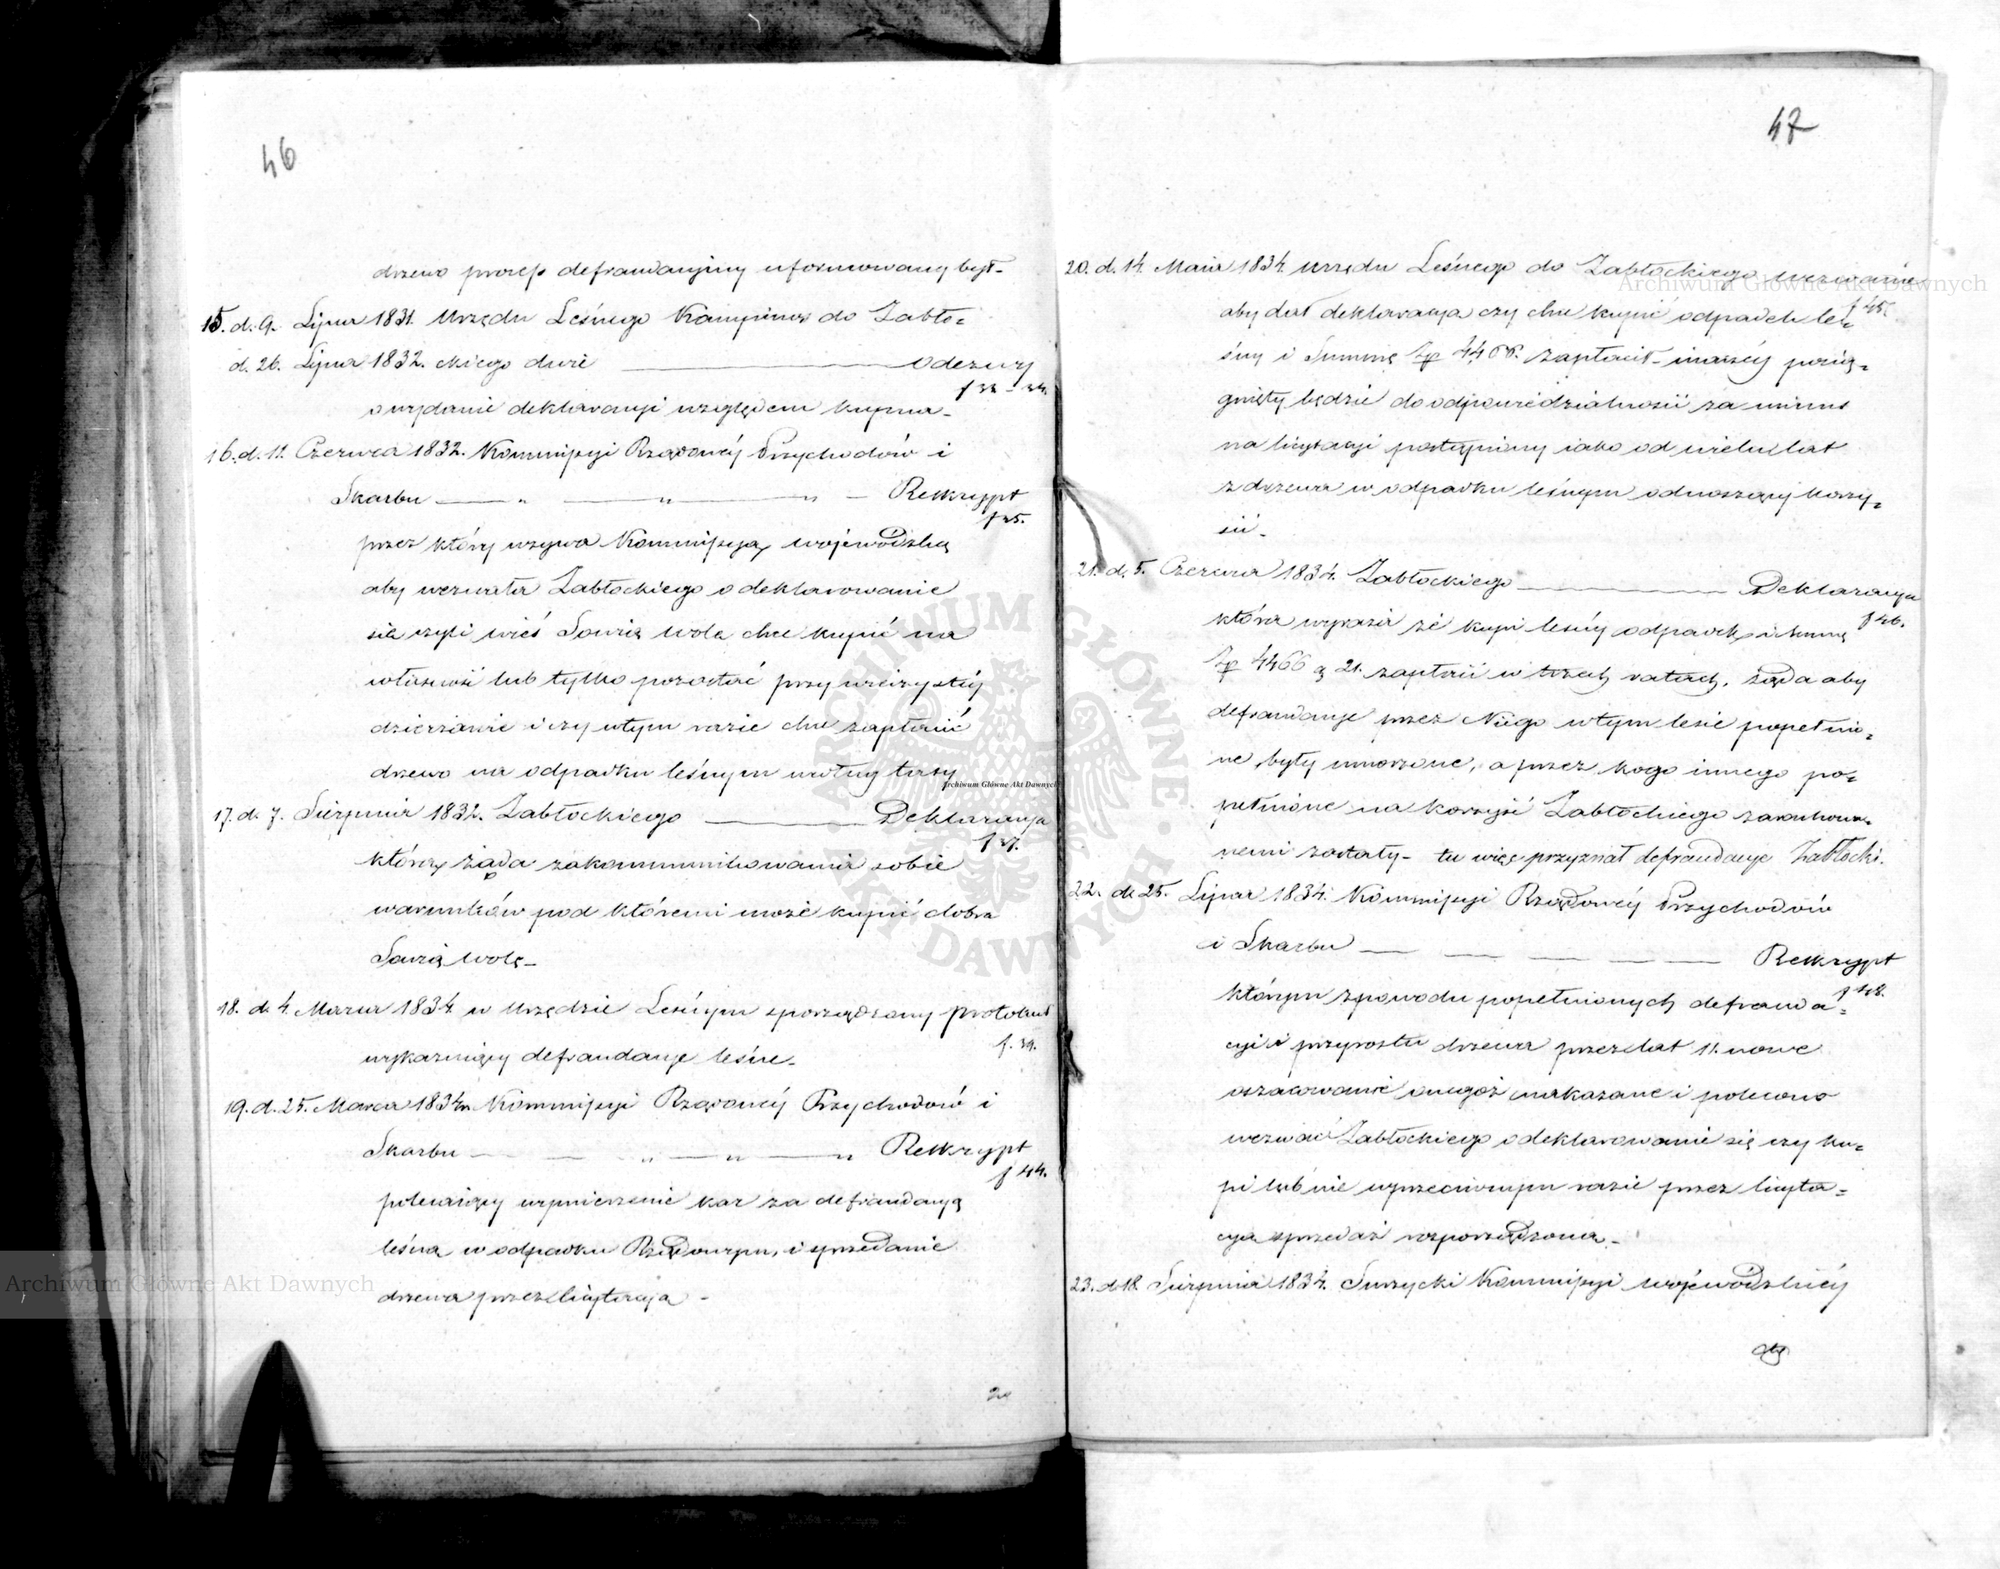 46
drzewo proceß defraudacyjny uformowany był_
15. d. 9. Lipca 1831. Urzędu Leśnego Kampinos do Zabło=
d. 26. Lipca 1832. ckiego dwie ——— Odezwy
f 33 - 34.
o wydanie deklaracyi względem kupna_
16. d. 11. Czerwca 1832. Kommißyi Rządowéy Przychodów i
Skarbu — „ — „ — „ — Reskrypt
f 35.
przez który wzywa Kommißyą wojewódzką
aby wezwała Zabłockiego o deklarowanie
się czyli wieś Sowią wolę chce kupić na
własność lub tylko pozostać przy wieczystéy
dzierżawie i czy w tym razie chce zapłacić
drzewo na odpadku leśnym według taxy
17. d. 7. Sierpnia 1832. Zabłockiego ——— Deklaracya
f 37.
którą żąda zakommunikowania sobie
warunków pod któremi może kupić dobra
Sowią wolę_
18. d. 4. Marca 1834 w Urzędzie Leśnym sporządzony protokuł
f. 39.
wykazujący defraudacye leśne_
19. d. 25. Marca 1834 Kommißyi Rządowéy Przychodów i
Skarbu — — „ — „ — „ Reskrypt
f 44.
polecaiący wymierzenie kar za defraudacyą
leśną w odpadku Rządowym, i sprzedanie
drzewa przez licytacyą -
47
20. d. 14. Maia 1834 Urzędu Leśnego do Zabłockiego wezwanie
f 45.
aby dał deklaracyą czy chce kupić odpadek le=
śny i Summę Zp 4466. zapłacił_ inaczéy pocią=
gnięty będzie do odpowiedzialności za minus
na licytacyi postąpiony iako od wielu lat
z drzewa w odpadku leśnym odnoszący korzy=
ści_
21. d. 5. Czerwca 1834. Zabłockiego ——— Deklaracya
f 46.
którą wyraża że kupi leśny odpadek i Summę
Zp 4466 g 21. zapłaci w trzech ratach, żąda aby
defraudacye przez Niego w tym lesie popełnio=
ne były umorzone, a przez kogo innego po=
pełnione na korzyść Zabłockiego zarachowa=
nemi zostały_ tu więc przyznał defraudacye Zabłocki.
22. d. 25. Lipca 1834. Kommißyi Rządowéy Przychodów
i Skarbu — — — — — Reskrypt
f 48.
którym z powodu popełnionych defrauda=
cyi i przyrostu drzewa przez lat 11. nowe
oszacowanie onegoż nakazane i polecono
wezwać Zabłockiego o deklarowanie się czy ku=
pi lub nie w przeciwnym razie przez licyta=
cyą sprzedaż rozporządzona_
23. d. 18. Sierpnia 1834. Surzycki Kommißyi wojewódzkiéy
Archiwum Główne Akt Dawnych
Archiwum Główne Akt Dawnych
Archiwum Główne Akt Dawnych
ARCHIWUM GŁÓWNE AKT DAWNYCH